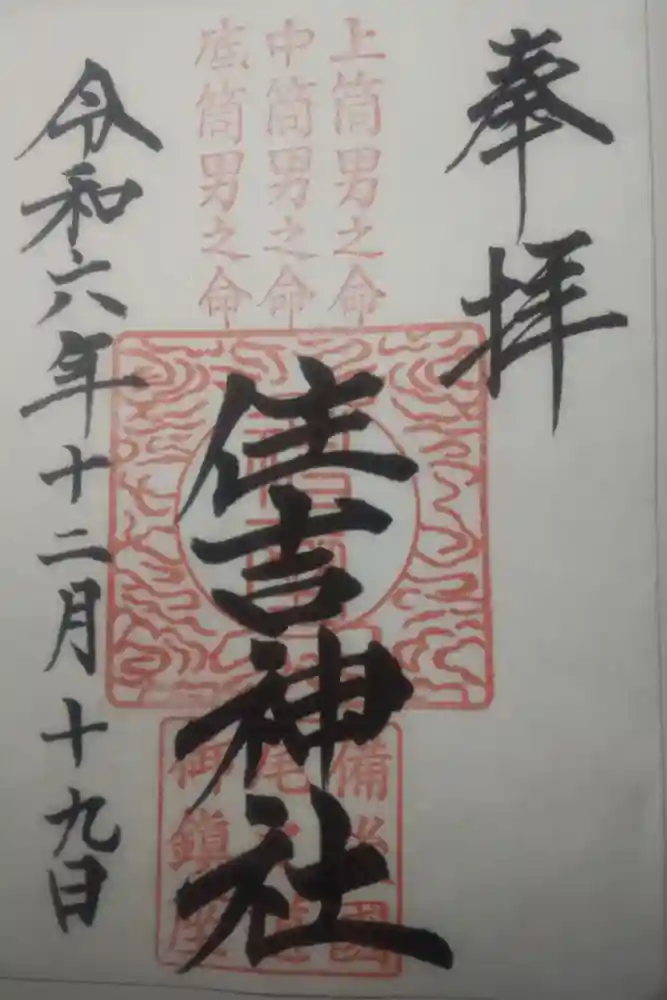 奉拝
上筒男之命
中筒男之命
底筒男之命
住吉神社
備後國
尾道
御鎮座
令和六年十二月十九日